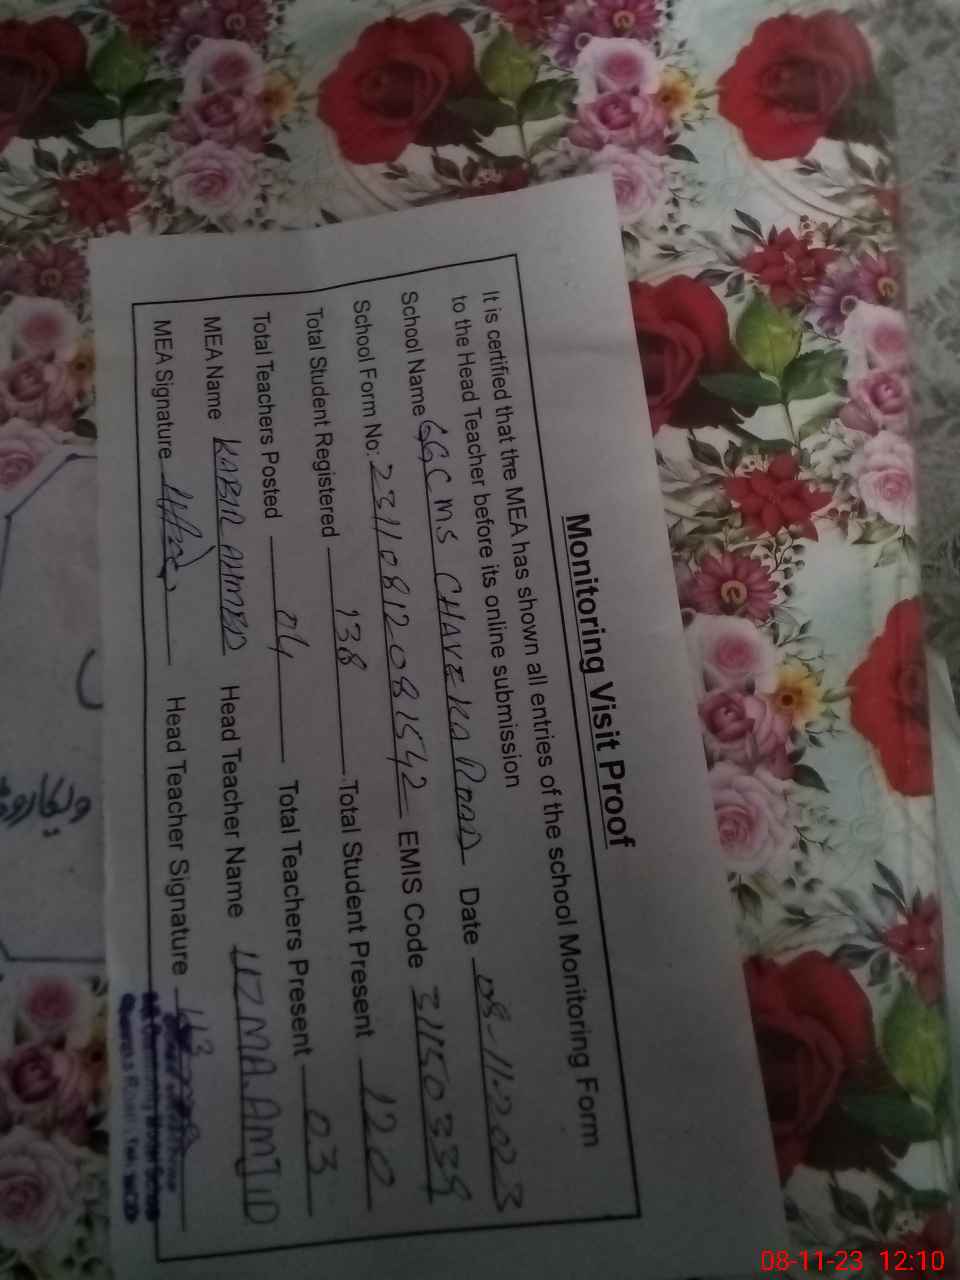 Monitoring Visit Proof
It is certified that the MEA has shown all entries of the school Monitoring Form
to the Head Teacher before its online submission
School Name GGCMS CHAVEKA ROAD Date 08-11-2023
School Form No: 23110812081542 EMIS Code 31150339
Total Student Registered 138 Total Student Present 120
Total Teachers Posted 04 Total Teachers Present 03
MEA Name KABIR AHMED Head Teacher Name UZMA.AMJID
MEA Signature Head Teacher Signature
08-11-23 12:10